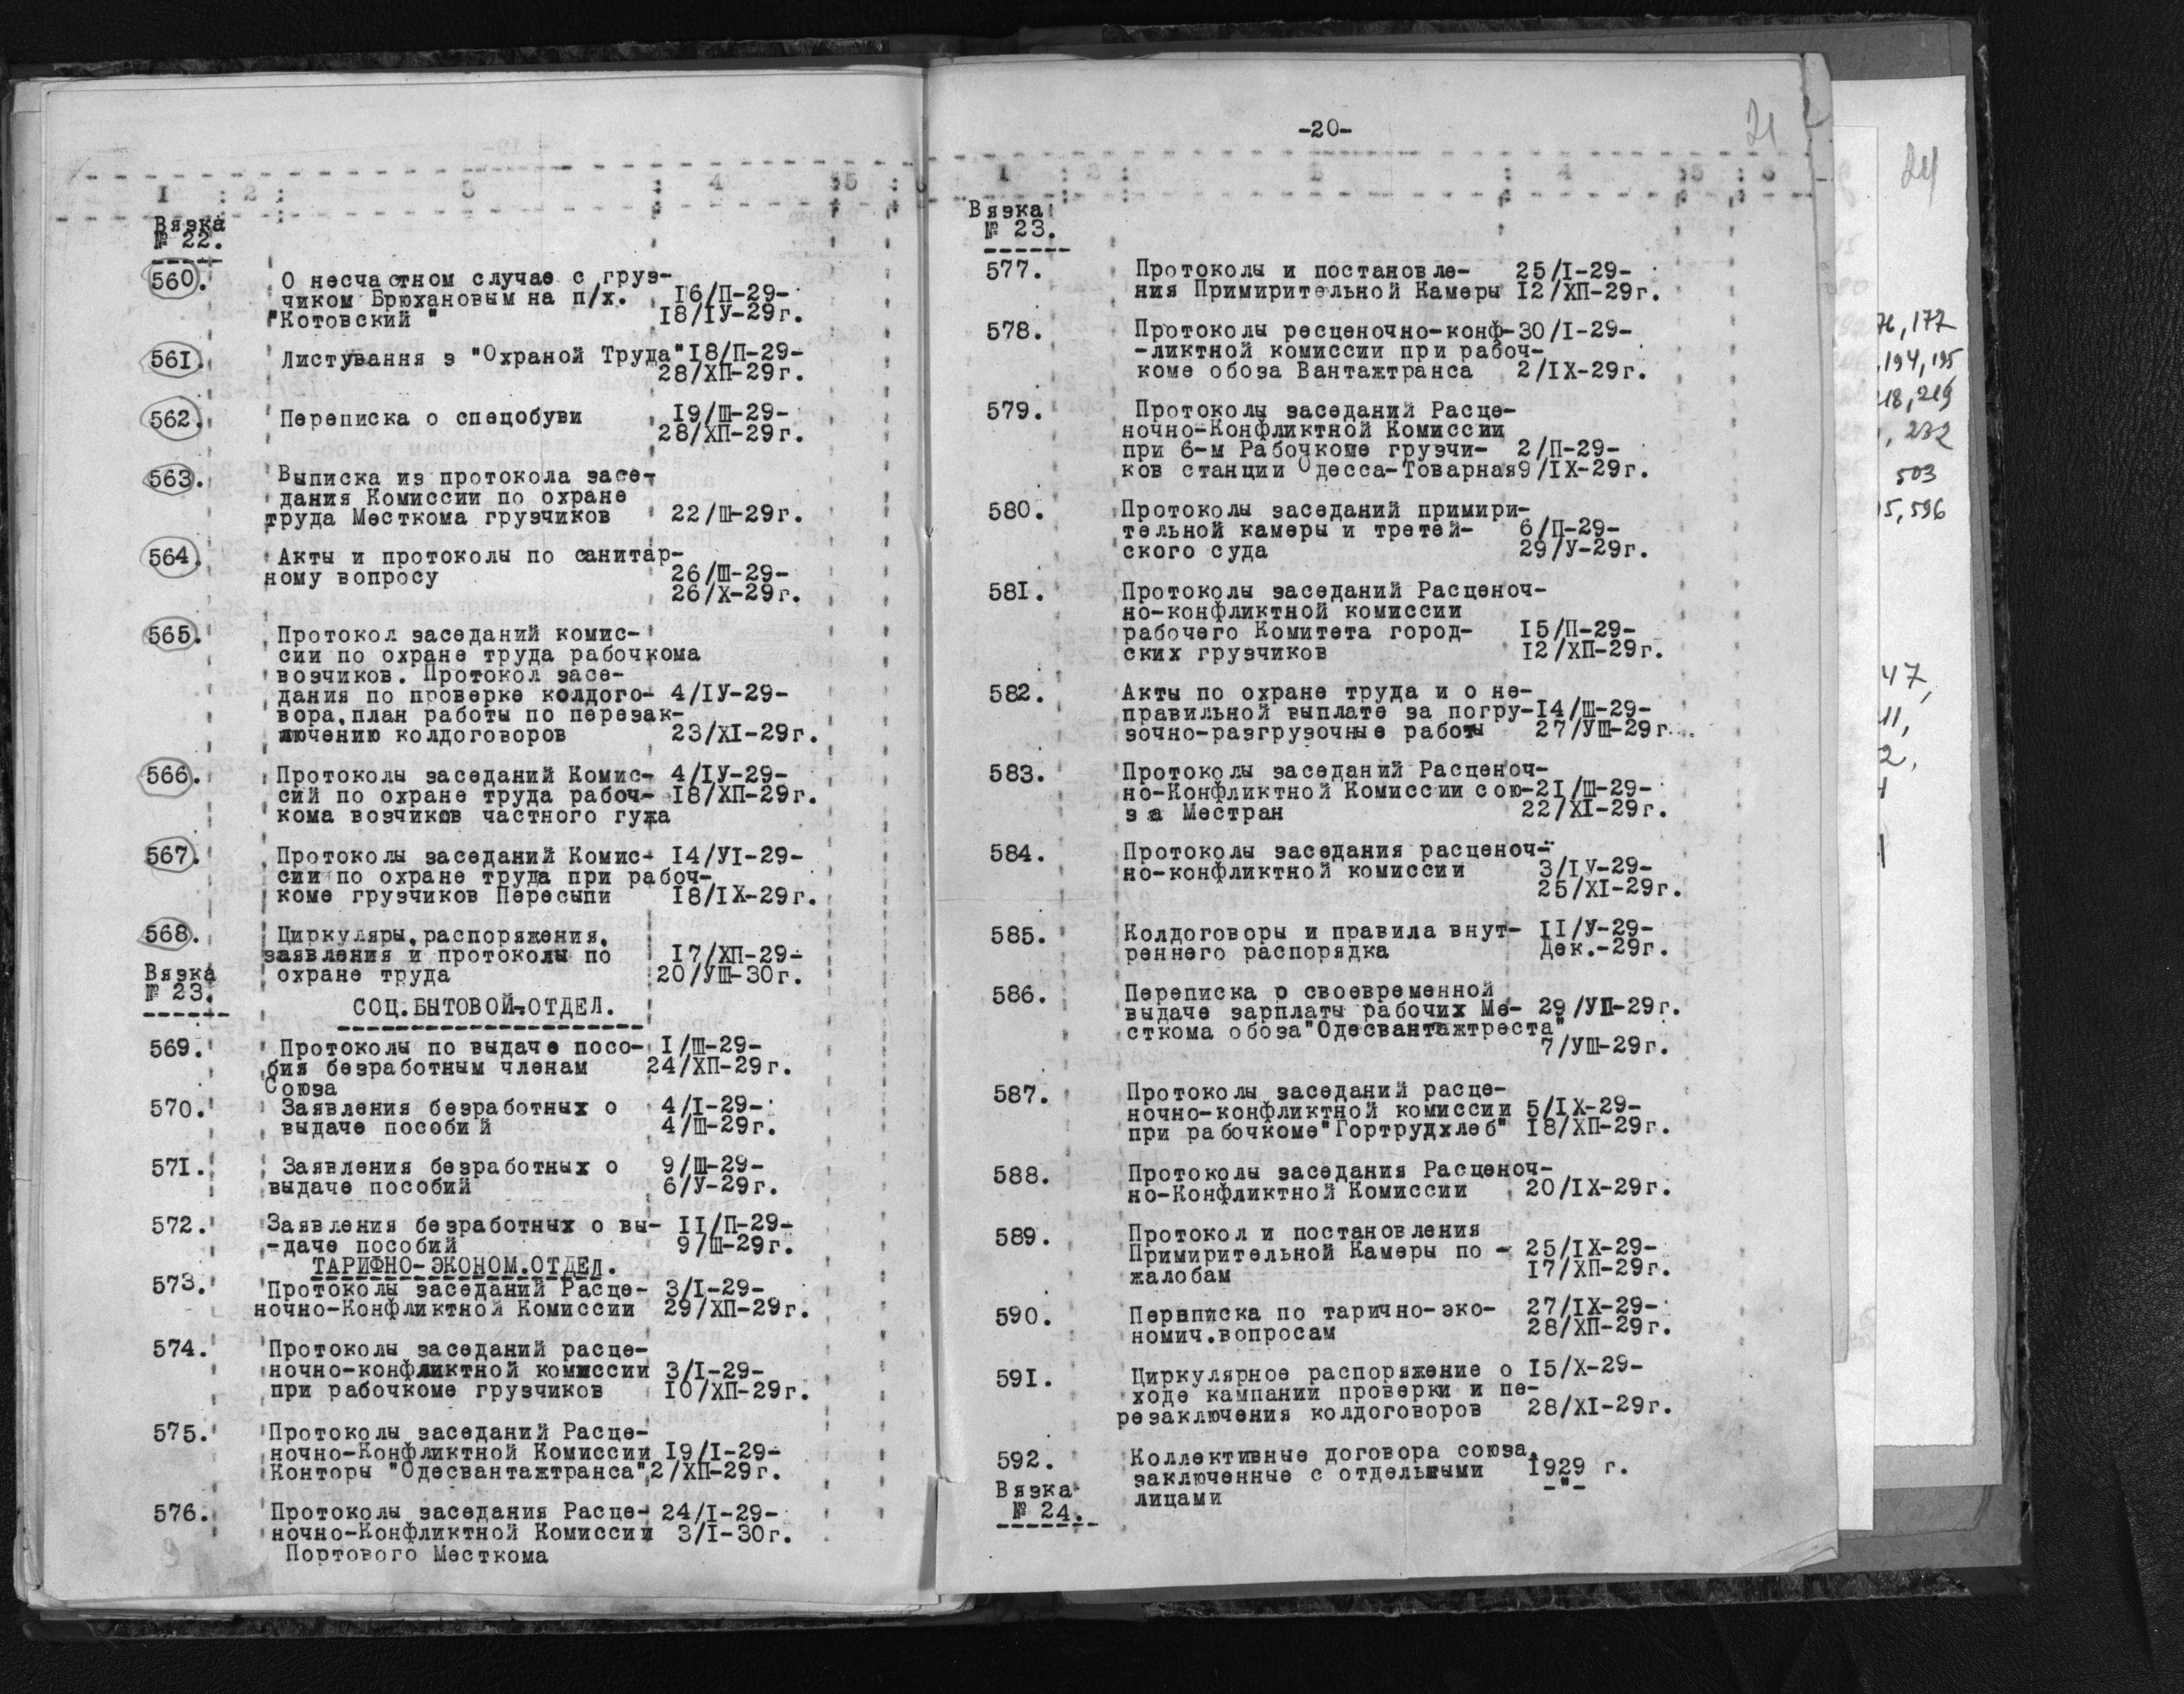 I : 2 : 3 : 4 :5 :
Вязка
№ 22.
560. О несчастном случае с груз-
чиком Брюхановым на п/х. 16/П-29-
"Котовский" 18/IУ-29г.
561. Листування з "Охраной Труда" 18/П-29-
28/ХП-29г.
562. Переписка о спецобуви 19/Ш-29-
28/ХП-29г.
563. Выписка из протокола засе-
дания Комиссии по охране
труда Месткома грузчиков 22/Ш-29г.
564. Акты и протоколы по санитар-
ному вопросу 26/Ш-29-
26/Х-29г.
565. Протокол заседаний комис-
сии по охране труда рабочкома
возчиков. Протокол засе-
дания по проверке колдого- 4/IУ-29-
вора,план работы по перезак-
лючению колдоговоров 23/XI-29г.
566. Протоколы заседаний Комис- 4/IУ-29-
сий по охране труда рабоч- 18/ХП-29г.
кома возчиков частного гужа
567. Протоколы заседаний Комис- 14/УI-29-
сии по охране труда при рабоч-
коме грузчиков Пересыпи 18/IX-29г.
568. Циркуляры,распоряжения,
заявления и протоколы по 17/ХП-29-
охране труда 20/УШ-30г.
Вязка
№ 23.
СОЦ.БЫТОВОЙ-ОТДЕЛ.
569. Протоколы по выдаче посо- I/Ш-29-
бия безработным членам 24/ХП-29г.
Союза
570. Заявления безработных о 4/I-29-
выдаче пособий 4/Ш-29г.
571. Заявления безработных о 9/Ш-29-
выдаче пособий 6/У-29г.
572. Заявления безработных о вы- II/П-29-
-даче пособий 9/Ш-29г.
ТАРИФНО-ЭКОНОМ.ОТДЕЛ.
573. Протоколы заседаний Расце- 3/I-29-
ночно-Конфликтной Комиссии 29/ХП-29г.
574. Протоколы заседаний расце-
ночно-конфликтной комиссии 3/I-29-
при рабочкоме грузчиков 10/ХП-29г.
575. Протоколы заседаний Расце-
ночно-Конфликтной Комиссии 19/I-29-
Конторы "Одесвантажтранса" 2/ХП-29г.
576. Протоколы заседания Расце- 24/I-29-
ночно-Конфликтной Комиссии 3/I-30г.
Портового Месткома
9
-20-
21
I : 2 : 3 : 4 :5 : 6
Вязка
№ 23.
577. Протоколы и постановле- 25/I-29-
ния Примирительной Камеры 12/ХП-29г.
578. Протоколы ресценочно-конф-30/I-29-
-ликтной комиссии при рабоч-
коме обоза Вантажтранса 2/IX-29г.
579. Протоколы заседаний Расце-
ночно-Конфликтной Комиссии
при 6-м Рабочкоме грузчи- 2/П-29-
ков станции Одесса-Товарная9/IX-29г.
580. Протоколы заседаний примири-
тельной камеры и третей- 6/П-29-
ского суда 29/У-29г.
581. Протоколы заседаний Расценоч-
но-конфликтной комиссии
рабочего Комитета город- 15/П-29-
ских грузчиков 12/ХП-29г.
582. Акты по охране труда и о не-
правильной выплате за погру-14/Ш-29-
зочно-разгрузочные работы 27/УШ-29г..
583. Протоколы заседаний Расценоч-
но-Конфликтной Комиссии сою-21/Ш-29-
за Местран 22/XI-29г.
584. Протоколы заседания расценоч-
но-конфликтной комиссии 3/IУ-29-
25/XI-29г.
585. Колдоговоры и правила внут- II/У-29-
реннего распорядка Дек.-29г.
586. Переписка о своевременной
выдаче зарплаты рабочих Ме- 29/УП-29г.
сткома обоза"Одесвантажтреста"
7/УШ-29г.
587. Протоколы заседаний расце-
ночно-конфликтной комиссии 5/IX-29-
при рабочкоме"Гортрудхлеб" 18/ХП-29г.
588. Протоколы заседания Расценоч-
но-Конфликтной Комиссии 20/IX-29г.
589. Протокол и постановления
Примирительной Камеры по - 25/IX-29-
жалобам 17/ХП-29г.
590. Переписка по тарично-эко- 27/IX-29-
номич.вопросам 28/ХП-29г.
591. Циркулярное распоряжение о 15/Х-29-
ходе кампании проверки и пе-
резаключения колдоговоров 28/XI-29г.
592. Коллективные договора союза,
заключенные с отдельными 1929 г.
лицами -"-
Вязка
№ 24.
24
76, 177
,194, 195
218, 219
, 232
503
5, 596
47,
11,
2,